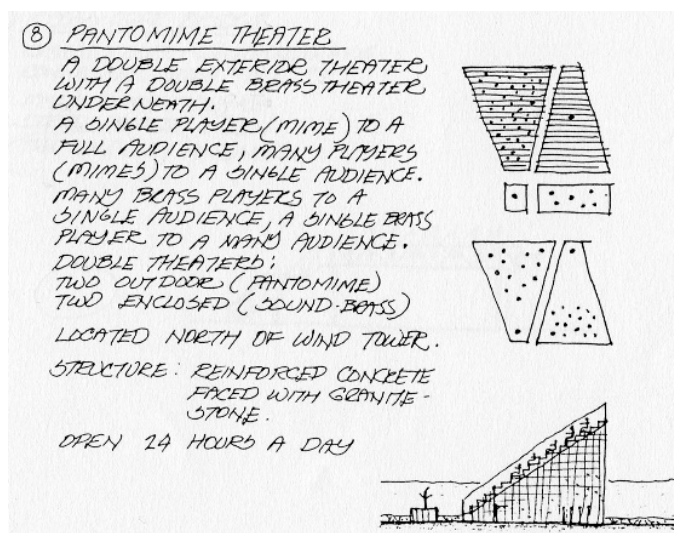 8 PANTOMIME THEATER
A DOUBLE EXTERIOR THEATER
WITH A DOUBLE BRASS THEATER
UNDERNEATH.
A SINGLE PLAYER (MIME) TO A
FULL AUDIENCE, MANY PLAYERS
(MIMES) TO A SINGLE AUDIENCE.
MANY BRASS PLAYERS TO A
SINGLE AUDIENCE, A SINGLE BRASS
PLAYER TO A MANY AUDIENCE.
DOUBLE THEATERS:
TWO OUTDOOR (PANTOMIME)
TWO ENCLOSED (SOUND-BRASS)
LOCATED NORTH OF WIND TOWER.
STRUCTURE: REINFORCED CONCRETE
FACED WITH GRANITE-
STONE.
OPEN 24 HOURS A DAY